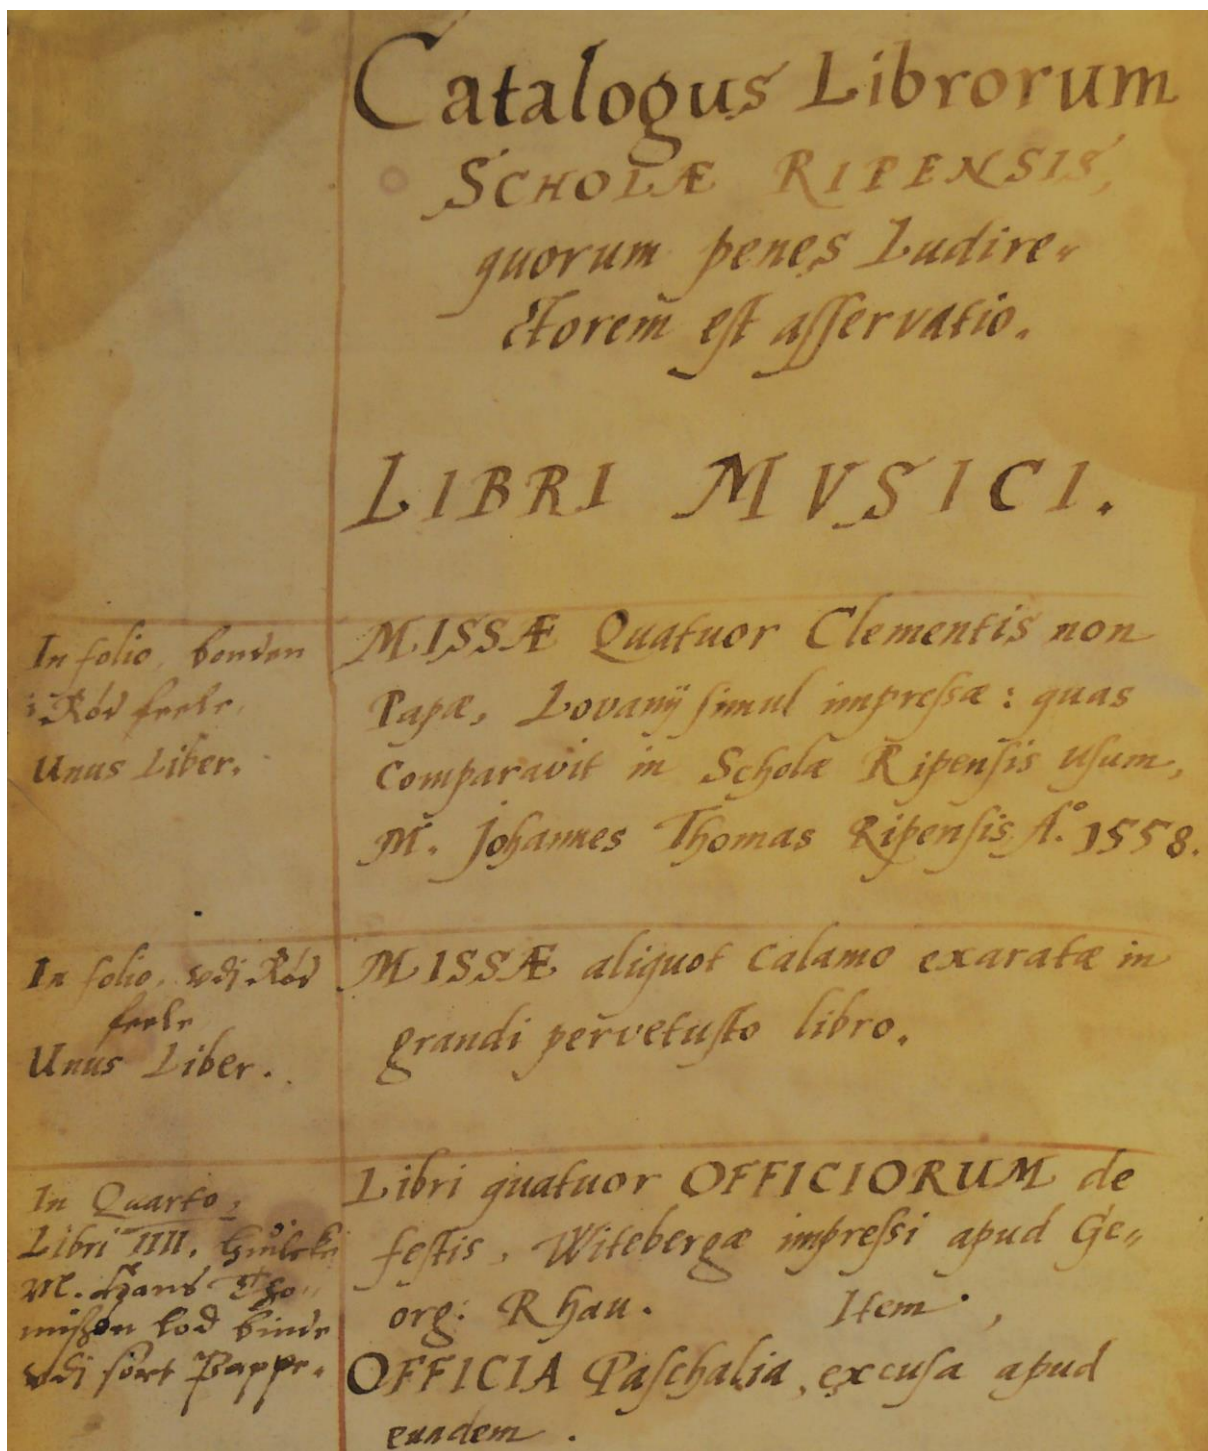 Catalogus Librorum
SCHOLÆ RIPENSIS,
quorum penes Ludire-
ctorem est asservatio.
LIBRI MVSICI.
In folio, bonden
i Ród feele.
Unus Liber.
MISSÆ Quatuor Clementis non
Papæ, Lovanij simul impressæ: quas
comparavit in Scholæ Ripensis usum,
M. Johannes Thomas Ripensis A°. 1558.
In folio, vdj Ród
feele
Unus Liber.
MISSÆ aliquot calamo exaratæ in
grandi pervetusto libro.
In Quarto,
Libri IIII, huilcke
M. Hans Tho-
mißøn lod binde
vdj sort Pappe.
Libri quatuor OFFICIORUM de
festis, Witebergæ impressi apud Ge-
org: Rhau. Item,
OFFICIA Paschalia, excusa apud
eundem.